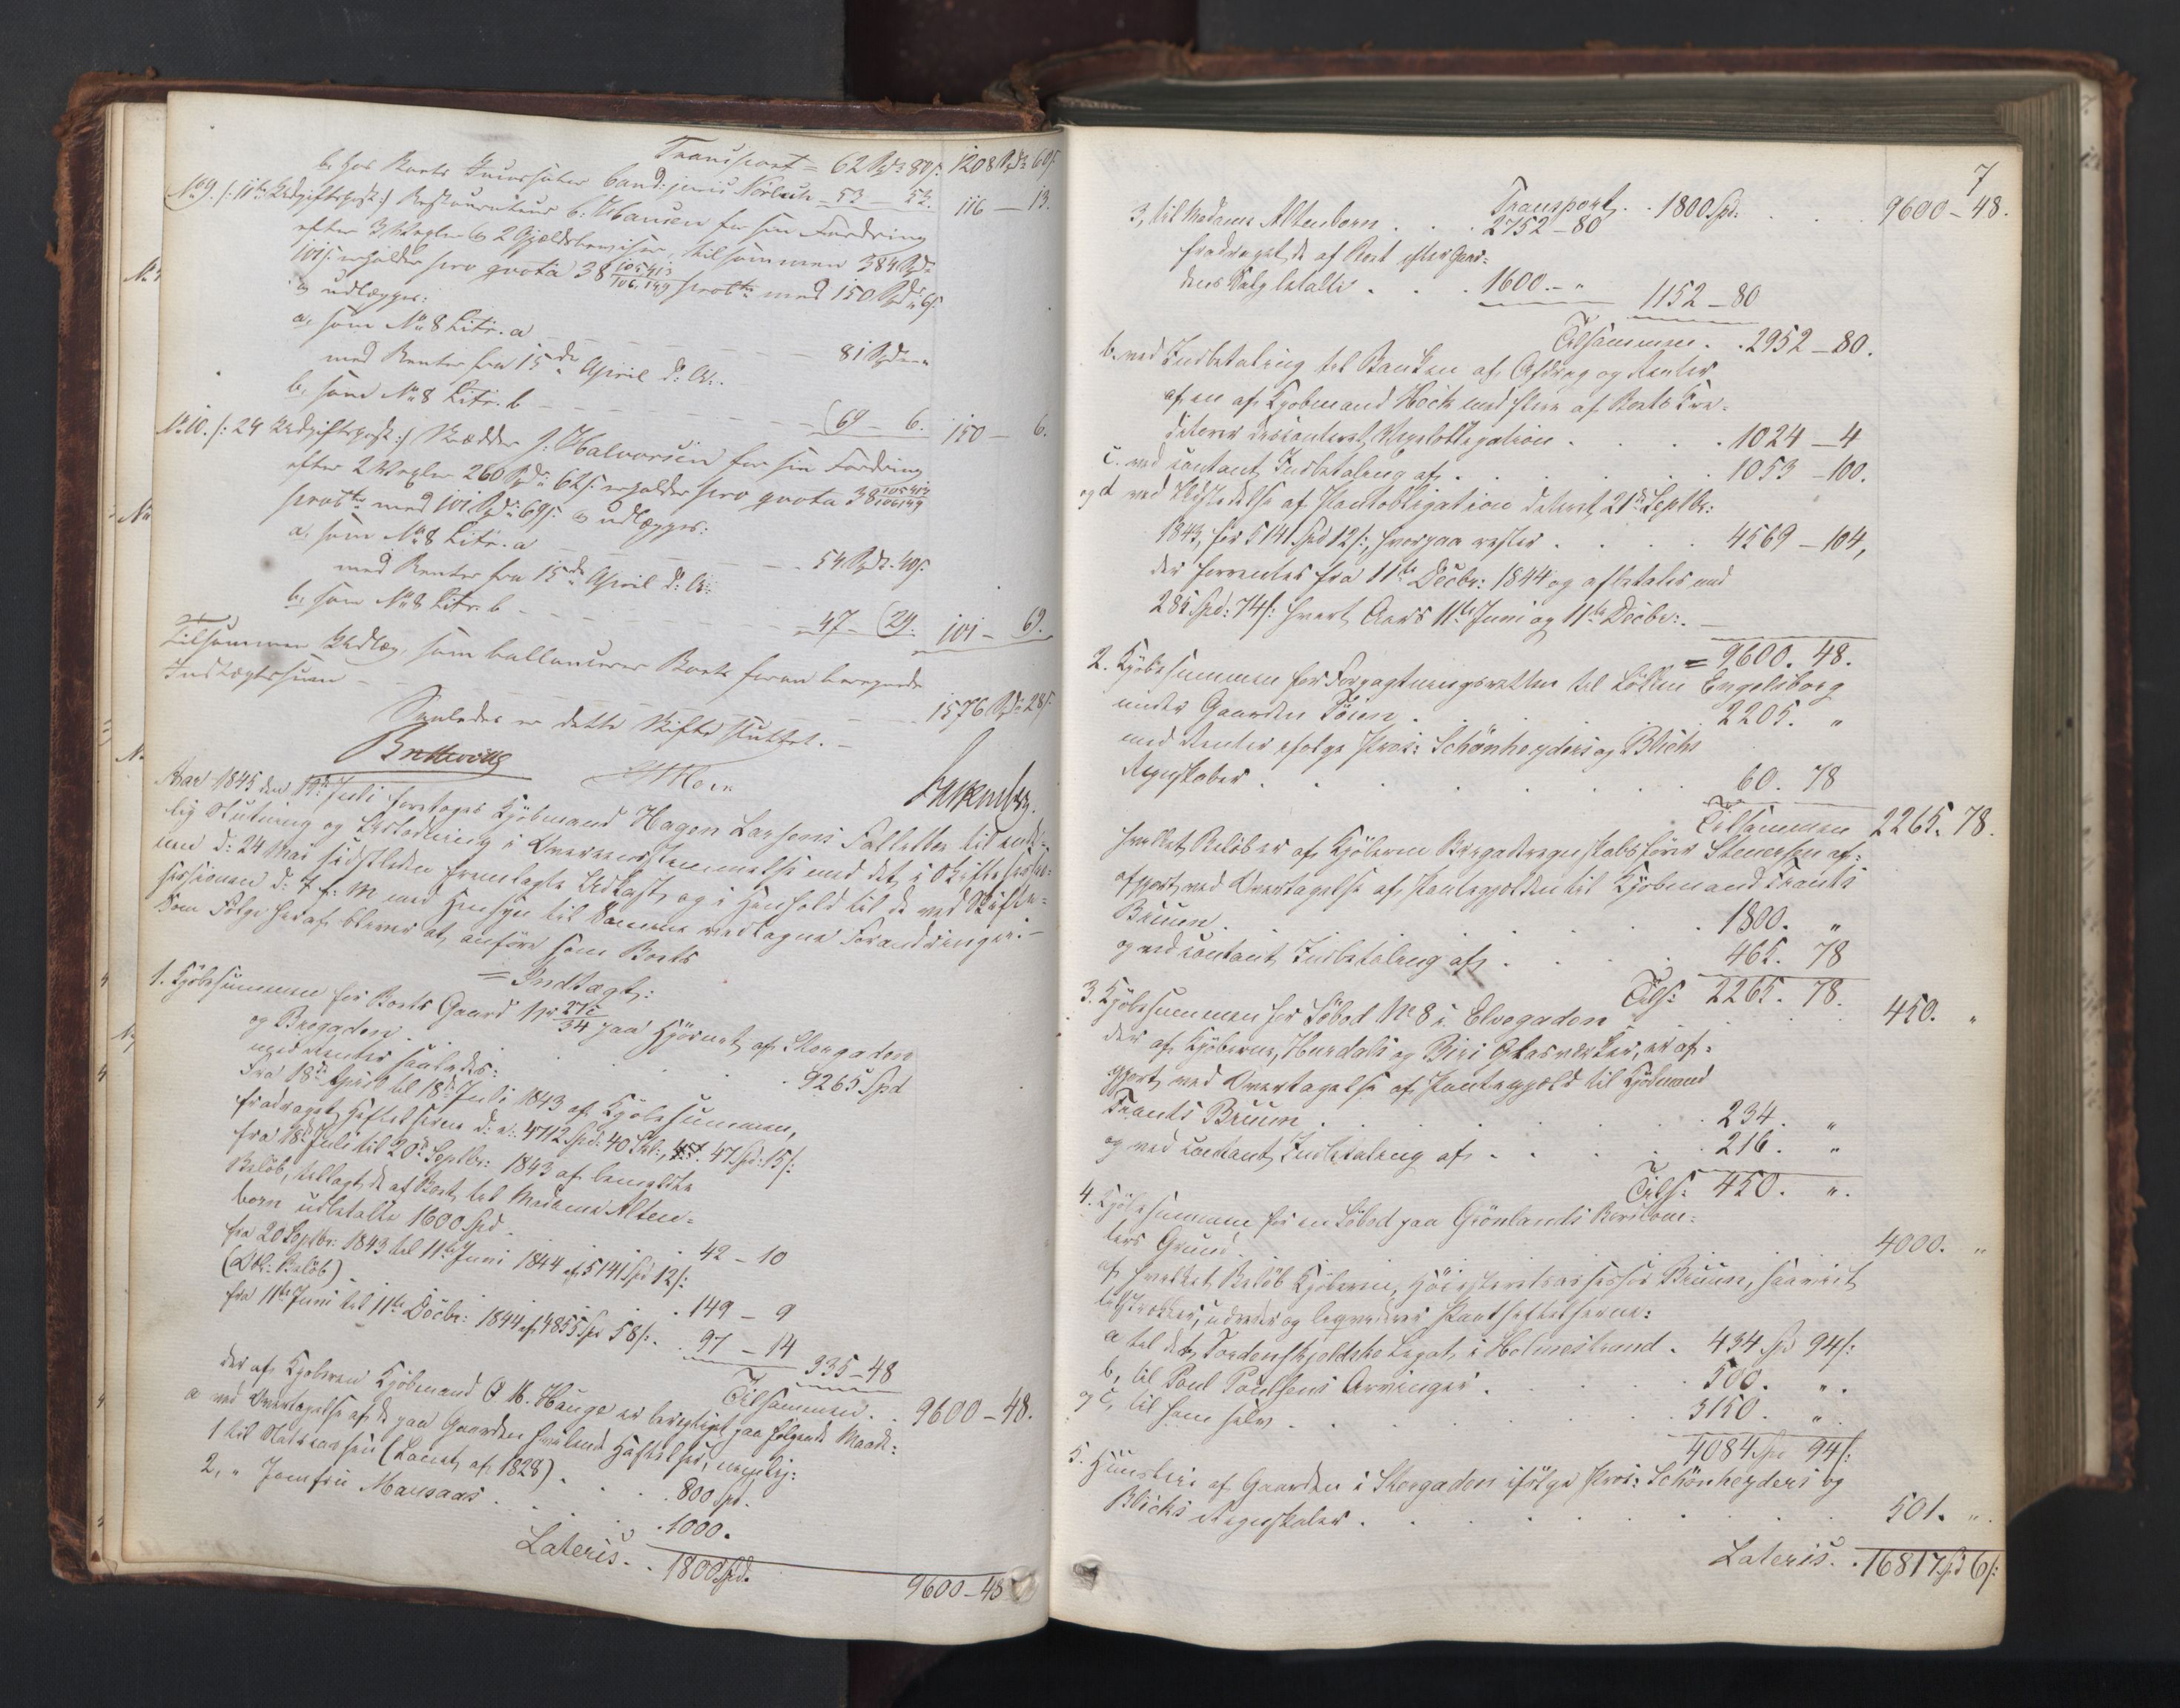 Transport = 62 Spd 80 s: 1208 Spd 60 s
b, hos Boets Incassator Cand: juris Norbech = 53 — 53. 116 — 13.
No 9. /: 11te Udgiftspost :/ Restaurateur C: Hansen for sin Fordring
efter 3 Vexler og 2 Gjældsbeviser, tilsammen 384 Spd
101 s: erholder pro quota 38 105413/106149 procto med 150 Spd 6 s:
og udlægges:
a, som No 8 Litr. a — — — — — 81 Spd "
med Renter fra 15de April d: A:.
b, som No 8 Litr. b — — — — — 69 — 6. 150 — 6.
No 10. /: 24 Udgiftspost :/ Skrædder J: Halvorsen for sin Fordring
efter 2 Vexler 260 Spd 62 s: erholder pro quota 38 105413/106149
procto med 101 Spd 69 s: og udlægges:
a, som No 8 Litr. a — — — — — 54 Spd 40 s:
med Renter fra 15de April d: A:
b, som No 8 Litr. b — — — — — 47 — 29. 101 — 69.
Tilsammen Udlæg, som ballancerer Boets foran beregnede
Indtægtssum — — — — — — 1576 Spd 28 s:
Saaledes er dette Skifte sluttet. —
Aar 1845 den 19de Juli foretoges Kjøbmand Hagen Larsens Fallitbo til ende-
lig Slutning og Udlodning i Overeensstemmelse med det i Skiftesessio-
nen d: 24 Mai sidstleden fremlagte Udkast, og i Henhold til de ved Skifte-
sessionen d: 7 f: M med Hensyn til Samme vedtagne Forandringer. —
Som Følge heraf bliver at anføre som Boets
= Indtægt:
1. Kjøbesummen for Boets Gaard No 275/34 paa Hjørnet af Storgaden
og Brogaden . . . . . 9265 Spd
med Renter saaledes:
Fra 18de April til 18de Juli 1843 af Kjøbesummen,
fradraget Heftelserne d: e: 4712 Spd: 40 Skl:, 47 Spd: 15 s:
fra 18de Juli til 20de Septbr: 1843 af bemeldte
Beløb, tillagt de af Boet til Madame Alten-
born udbetalte 1600 Spd . . . 42 — 10
fra 20 Septbr: 1843 til 11te Juni 1844 af 5141 Spd 12 s:
(Obl: Beløb) . . . . 149 — 9
fra 11te Juni til 11te Decbr: 1844 af 4855 Spd 58 s: . 97 — 14
335 — 48
Tilsammen . . 9600 — 48.
der af Kjøberen Kjøbmand O H. Hauge er berigtiget paa følgende Maade:
a ved Overtagelse af de paa Gaarden hvilende Hæftelser, nemlig:
1 til Statskassen (Laanet af 1828) . . . 800 Spd.
2, " Jomfru Mansaas . . . . 1000.
Lateris. . 1800 Spd. 9600 — 48
7
Transport. . 1800 Spd: . . . 9600 — 48.
3, til Madame Altenborn . . . 2752 — 80
fradraget de af Boet efter Gaar-
dens Salg betalte . . . 1600. — " 1152 — 80
Tilsammen. . 2952 — 80.
b. ved Indbetaling til Banken af Afdrag og Renter
af en af Kjøbmand Höck med flere af Boets Cre-
ditorer disconteret Vexelobligation . . . . 1024 — 4
c. ved contant Indbetaling af . . . . . 1053 — 100.
og d ved Udstedelse af Pantobligation dateret 21de Septbr:
1843, for 5141 Spd 12 s:, hvorpaa rester . . . . 4569 — 104,
der forrentes fra 11te Decbr: 1844 og afbetales med
285 Spd: 74 s: hvert Aars 11te Juni og 11te Decbr: . —
= 9600. 48.
2. Kjøbesummen for Forpagtningsretten til Løkken Engelsborg
under Gaarden Tøien . . . . . 2205. "
med Renter ifølge Proc: Schönheyders og Blichs
Regnskaber . . . . . . . 60. 78
Tilsammen 2265. 78.
hvilket Beløb er af Kjøberen Brigaderegnskabsfører Stenersen af-
gjort ved Overtagelse af Pantegjælden til Kjøbmand Frants
Bruun . . . . . . . 1800. "
og ved contant Indbetaling af . . . . 465. 78
Tils: 2265. 78.
3. Kjøbesummen for Søbod No 8 i Elvegaden . . . . 450. "
der af Kjøberne, Hurdals og Biri Glasværker, er af-
gjort ved Overtagelse af Pantegjæld til Kjøbmand
Frants Bruun . . . . . . 234. "
og ved contant Indbetaling af . . . . . 216. "
Tils: 450. ".
4. Kjøbesummen for en Søbod paa Grönlands
Grund . . . . . . . 4000. "
af hvilket Beløb Kjøberen, Höiesteretsassessor Bruun, saavidt
tilstrækker, udreder og liqviderer Pantheftelserne:
a til det Tordenskjoldske Legat i Holmestrand . 434 Spd 94 s:
b, til Poul Poulsens Arvinger . . . . 500. ".
og c, til ham selv . . . . . . 3150. ".
4084 Spd 94 s:
5. Huusleie af Gaarden i Storgaden ifølge Proc: Schönheyders og
Blichs Regnskaber . . . . . . . 501. ".
Lateris. . 16817 Spd 6 s: